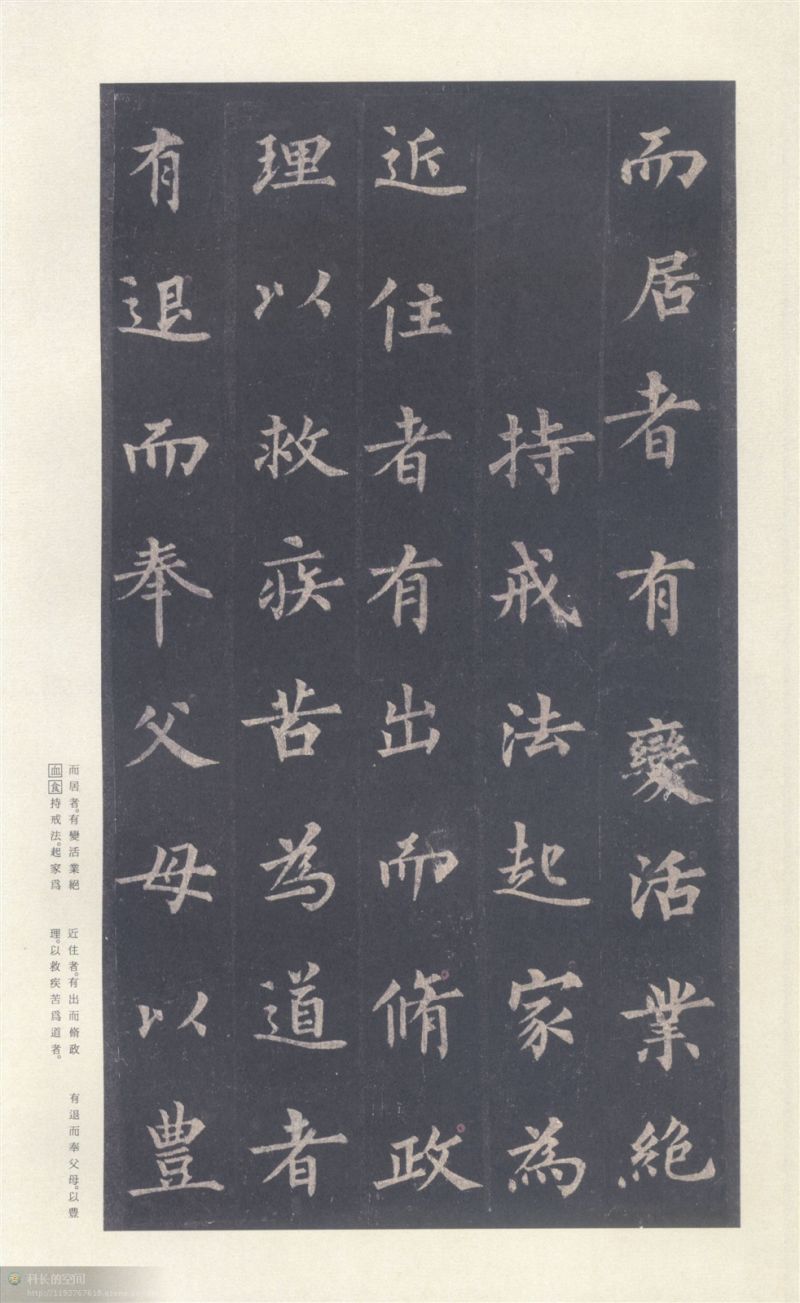 而居者有變活業絕
持戒法起家為
近住者有出而脩政
理以救疾苦為道者
有退而奉父母以豊
而居者。有變活業絕
血食持戒法。起家爲
近住者。有出而脩政
理。以救疾苦爲道者。
有退而奉父母。以豊
科长的空间